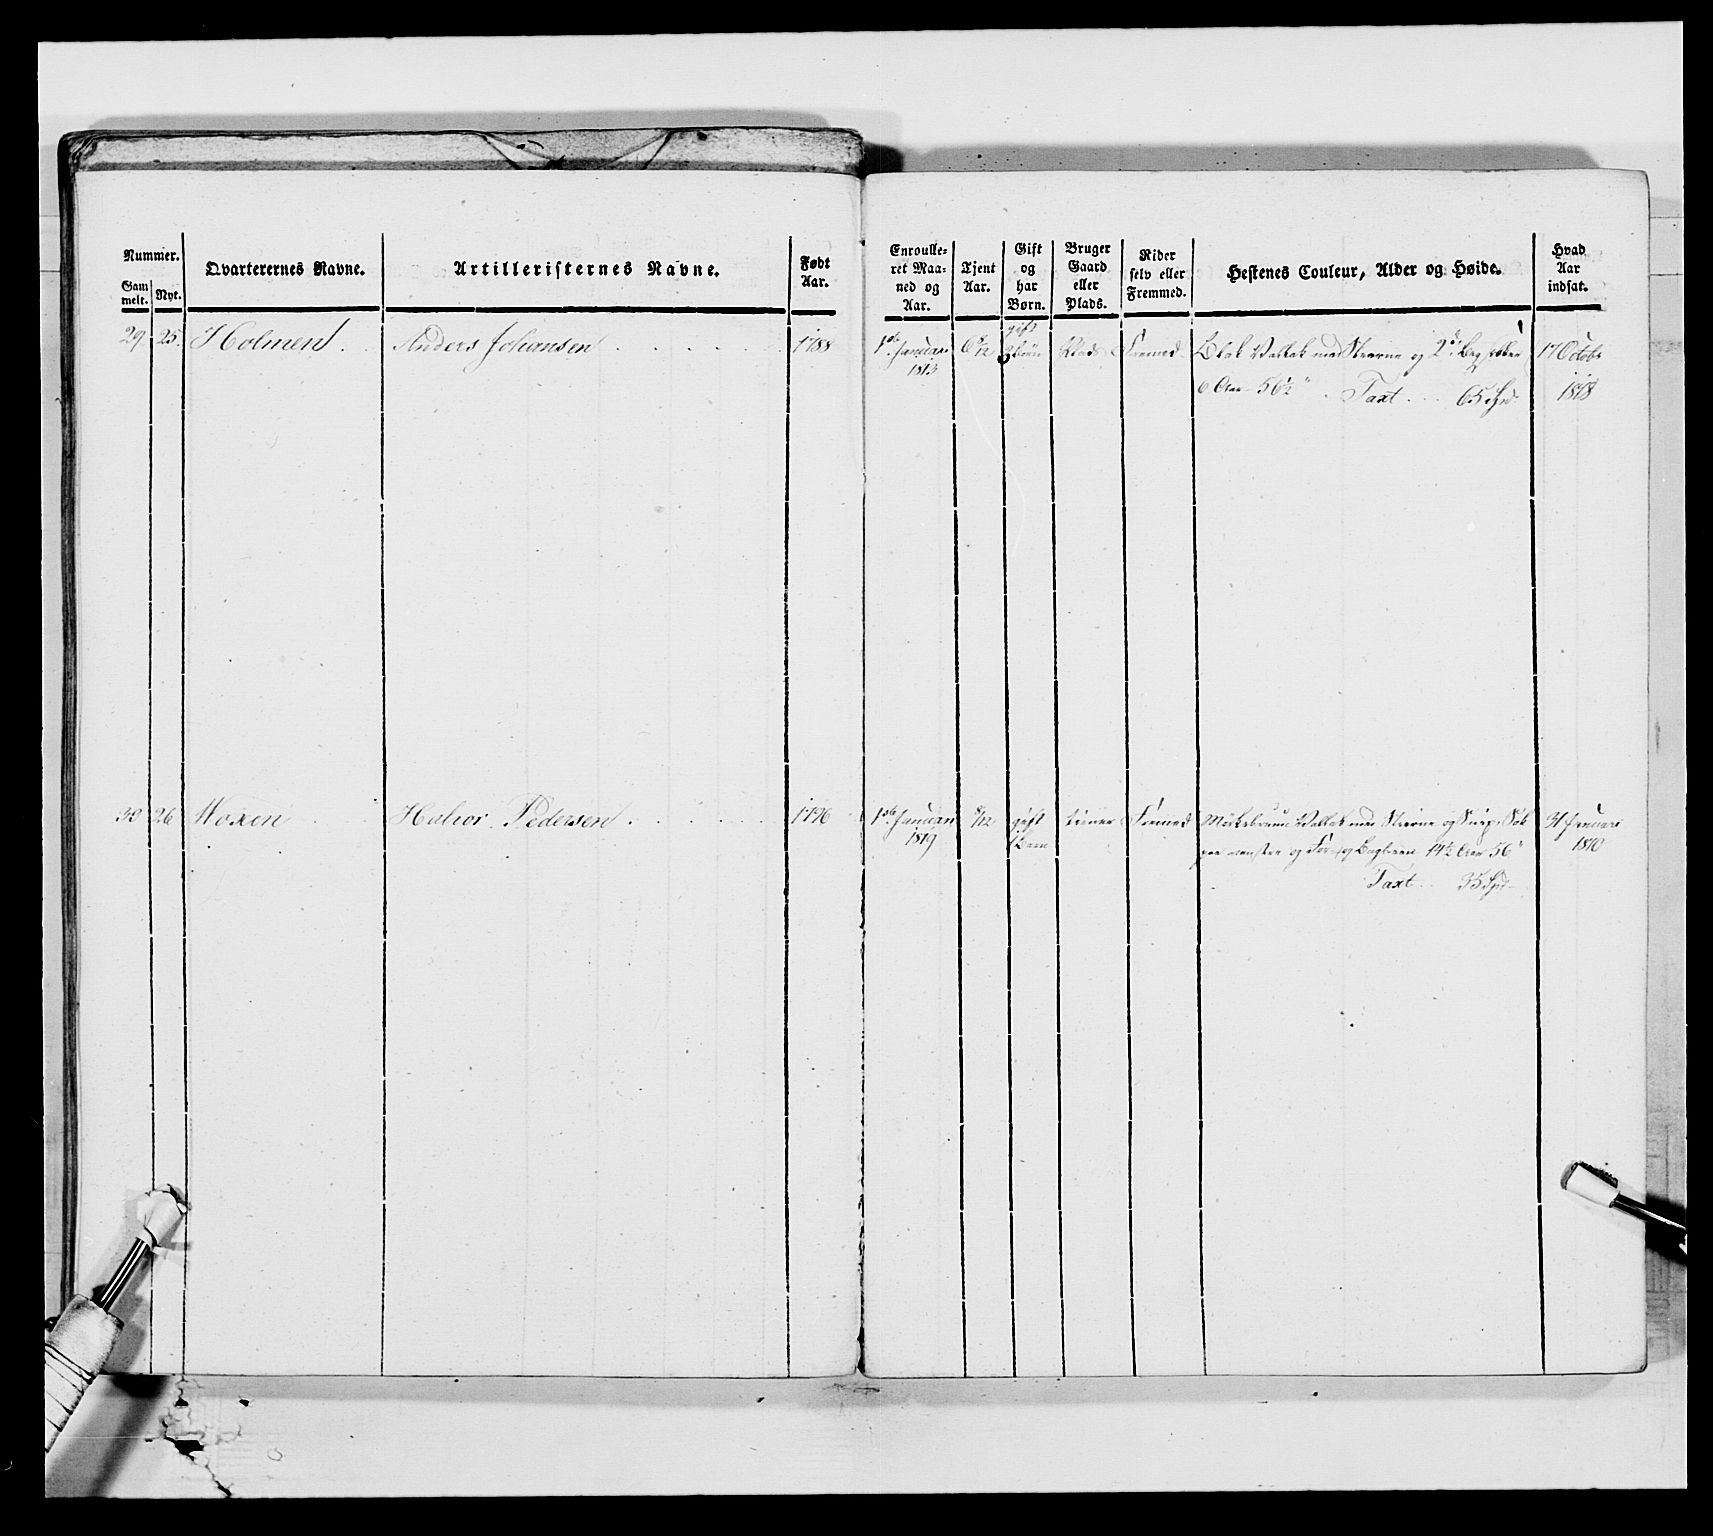 Nummer.
Gam
melt.
Nyt.
Qvarterernes Navne.
Artilleristernes Navne.
Født
Aar.
Enroulle=
ret Maa=
ned og
Aar.
Tjent
Aar.
Gift
og
har
Børn.
Bruger
Gaard
eller
Plads.
Rider
selv eller
Fremmed.
Hestenes Couleur, Alder og Høide.
Hvad
Aar
indsat.
29 25. Holmen Anders Johansen 1788
1ste Januari 6 8/12 gift
1813 3 børn Plads Fremed
Blak Vallak med Stierne og 2de
6 Aar 56½" Taxt 65 Spd.
17 Octobr
1818
30 26 Woxen Halvor Pedersen 1796
1ste Januari 8/12 gift tiener Fremed
1819 1 Barn
Vallak med Stierne og Snip,
venstre og For- og Bagbeen 14½ Aar 56"
Taxt 35 Spd
Januari
1810